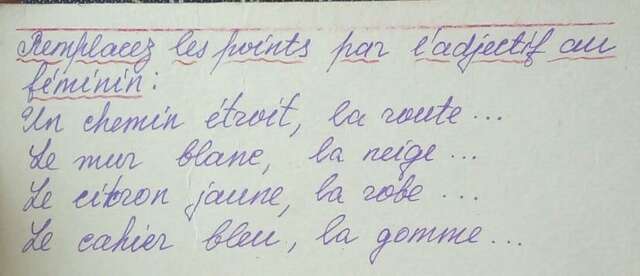 Remplacez les points par l'adjectif au
féminin:
Un chemin étroit, la route...
Le mur blanc, la neige...
Le citron jaune, la robe ...
Le cahier bleu, la gomme...